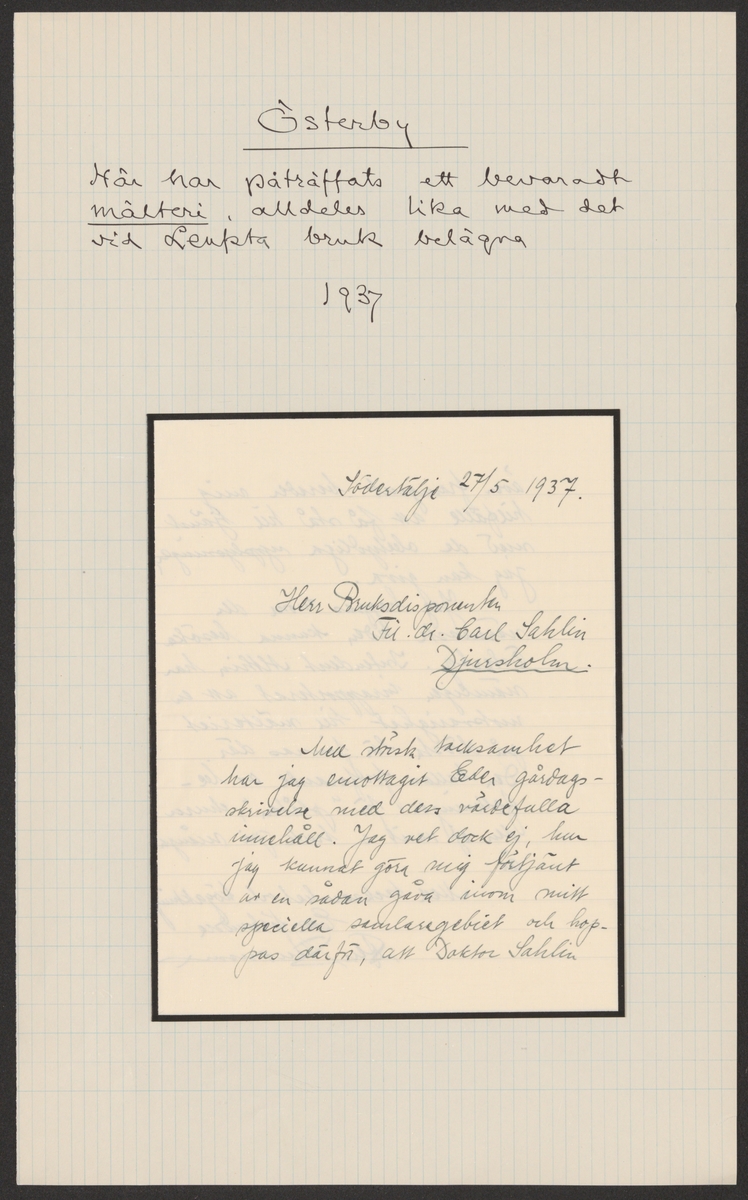 Österby
Här har påträffats ett bevaradt
mälteri, alldeles lika med det
vid Leufsta bruk belägna
1937
Södertälje 27/5 1937.
Herr Bruksdisponenten
Fil. dr. Carl Sahlin
Djursholm.
Med största tacksamhet
har jag emottagit Eder gårdags-
skrivelse med dess värdefulla
innehåll. Jag vet dock ej, hur
jag kunnat göra mig förtjänt
av en sådan gåva inom mitt
speciella samlaregebiet och hop-
pas därför, att Doktor Sahlin